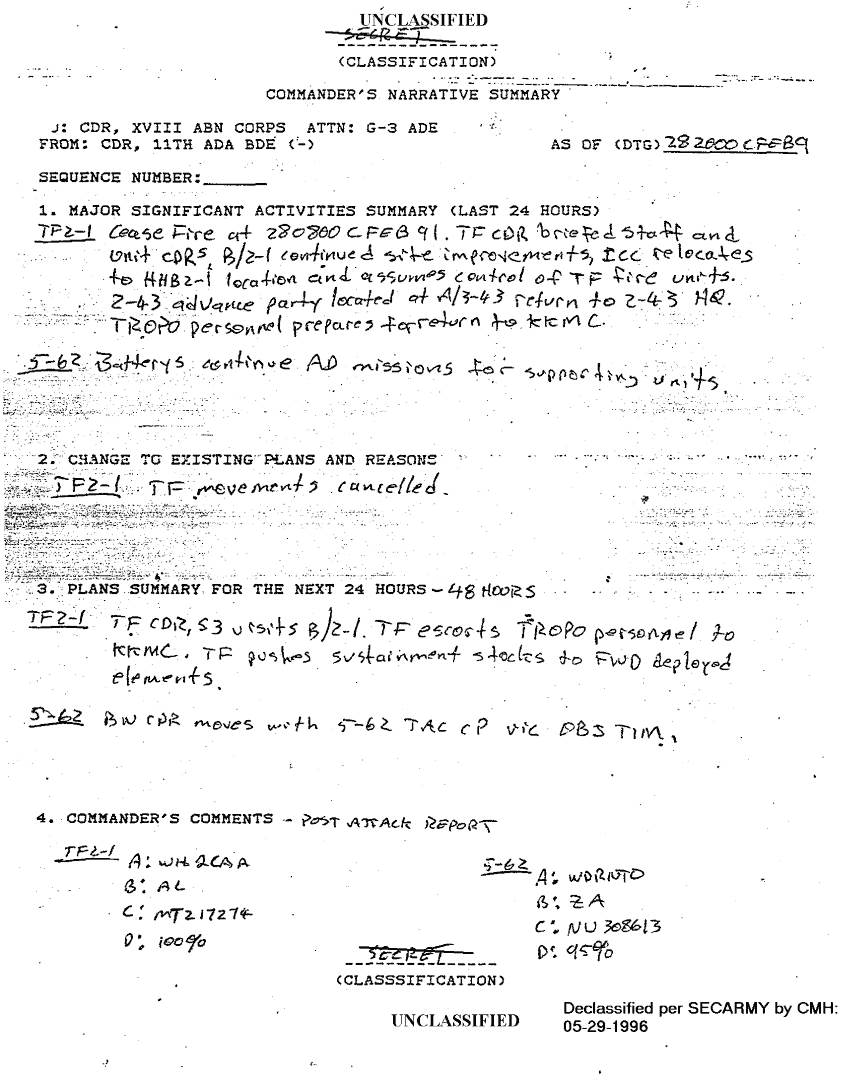 UNCLASSIFIED
SECRET
(CLASSIFICATION)
COMMANDER'S NARRATIVE SUMMARY
J: CDR, XVIII ABN CORPS ATTN: G-3 ADE
FROM: CDR, 11TH ADA BDE (-)
AS OF (DTG) 282000CFEB9
SEQUENCE NUMBER:
1. MAJOR SIGNIFICANT ACTIVITIES SUMMARY (LAST 24 HOURS)
TF2-1 Cease Fire at 280800CFEB91. TF CDR briefed staff and
unit CDRS, B/2-1 continued site improvements, ICC relocates
to HHB2-1 location and assumes control of TF fire units.
2-43 advance party located at A/3-43 return to 2-43 HQ.
TROPO personnel prepares for return to KKMC.
5-62 Batterys continue AD missions for supporting units.
2. CHANGE TO EXISTING PLANS AND REASONS
TF2-1 TF movements cancelled.
3. PLANS SUMMARY FOR THE NEXT 24 HOURS - 48 HOURS
TF2-1 TF CDR, S3 visits B/2-1. TF escorts TROPO personnel to
KKMC. TF pushes sustainment stocks to FWD deployed
elements.
5-62 BN CDR moves with 5-62 TAC CP vic OBJ TIM.
4. COMMANDER'S COMMENTS - POST ATTACK REPORT
TF2-1 A: WH2CAA
B: AL
C: MT217274
D: 100%
5-62 A: WDRNTO
B: ZA
C: NU 308613
D: 95%
SECRET
(CLASSSIFICATION)
UNCLASSIFIED
Declassified per SECARMY by CMH:
05-29-1996